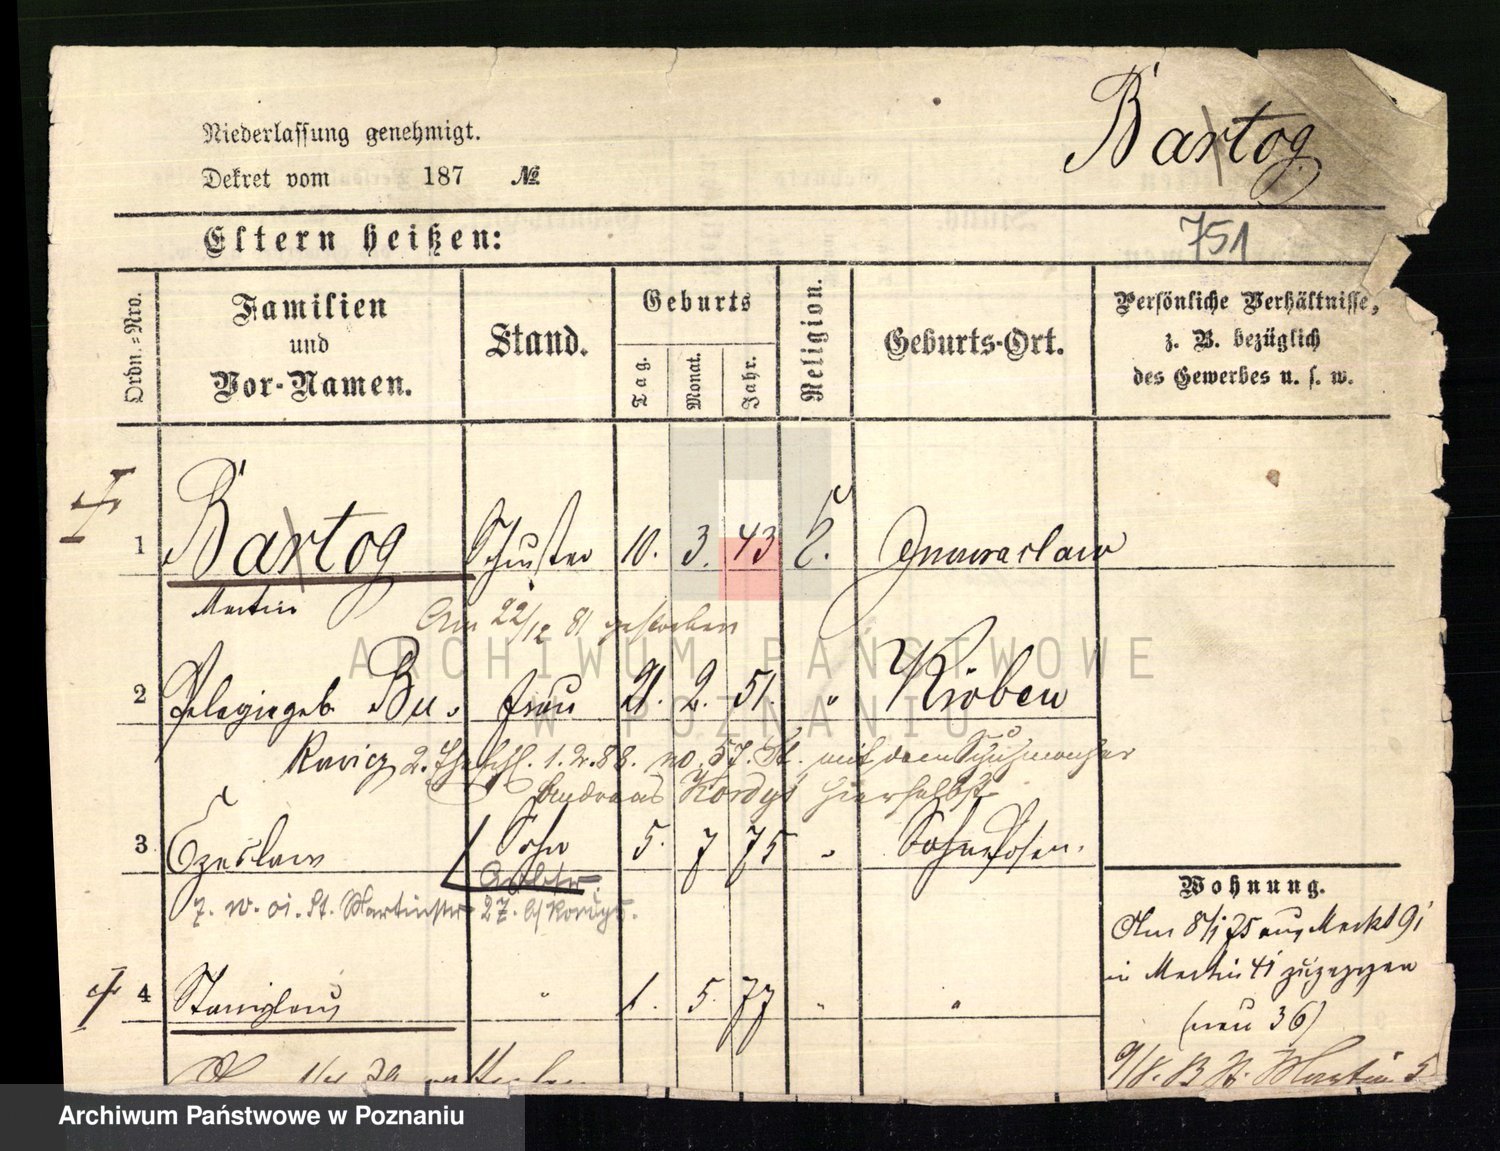 Bartog
Niederlassung genehmigt.
Dekret vom 187 №
751
Eltern heißen:
Ordn.=Nro.
Familien
und
Vor-Namen.
Stand.
Geburts
Tag.
Monat.
Jahr.
Religion.
Geburts-Ort.
Persönliche Verhältnisse,
z. B. bezüglich
des Gewerbes u. s. w.
1 Bartog Schuster 10. 3. 43 Inowraclaw
Martin
Am 22/12 81 gestorben
2 Pelagie geb Bu. Frau 21. 2. 51. " Kröben
2. 1. 2. 88. no. 57. St. mit dem Schuhmacher
Andreas Kordys hierselbst
3 Czeslaw Sohn 5. 7 75 " Posen.
Arbtr.
7. St. Martinstr 27. b/ Kordys.
4 Stanislaus " 1. 5. 77 " "
Wohnung.
Am 8/1 75 aus Markt 91
in Martin 41 gezogen
(neu 36)
9/8. B St. Martin 5
ARCHIWUM PAŃSTWOWE
W POZNANIU
Archiwum Państwowe w Poznaniu